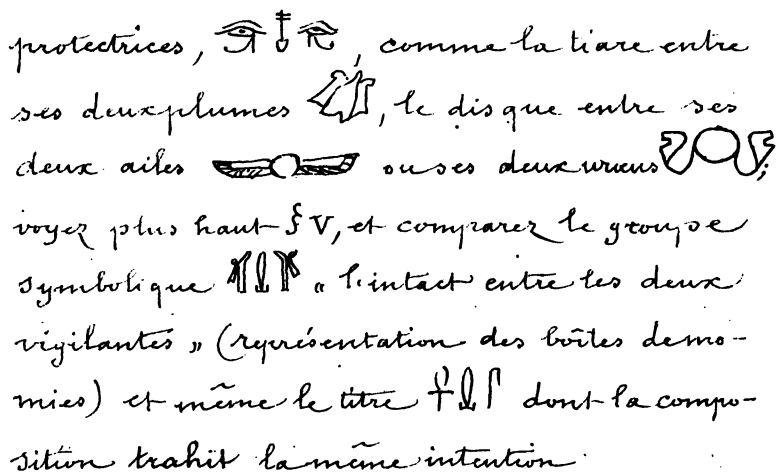 protectrices, 𓂀 𓄤 𓁹, comme la tiare entre
ses deux plumes, le disque entre ses
deux ailes ou ses deux uræus;
voyez plus haut § V, et comparez le groupe
symbolique « l'intact entre les deux
vigilantes » (représentation des boîtes de mo-
mies) et même le titre dont la compo-
sition trahit la même intention.